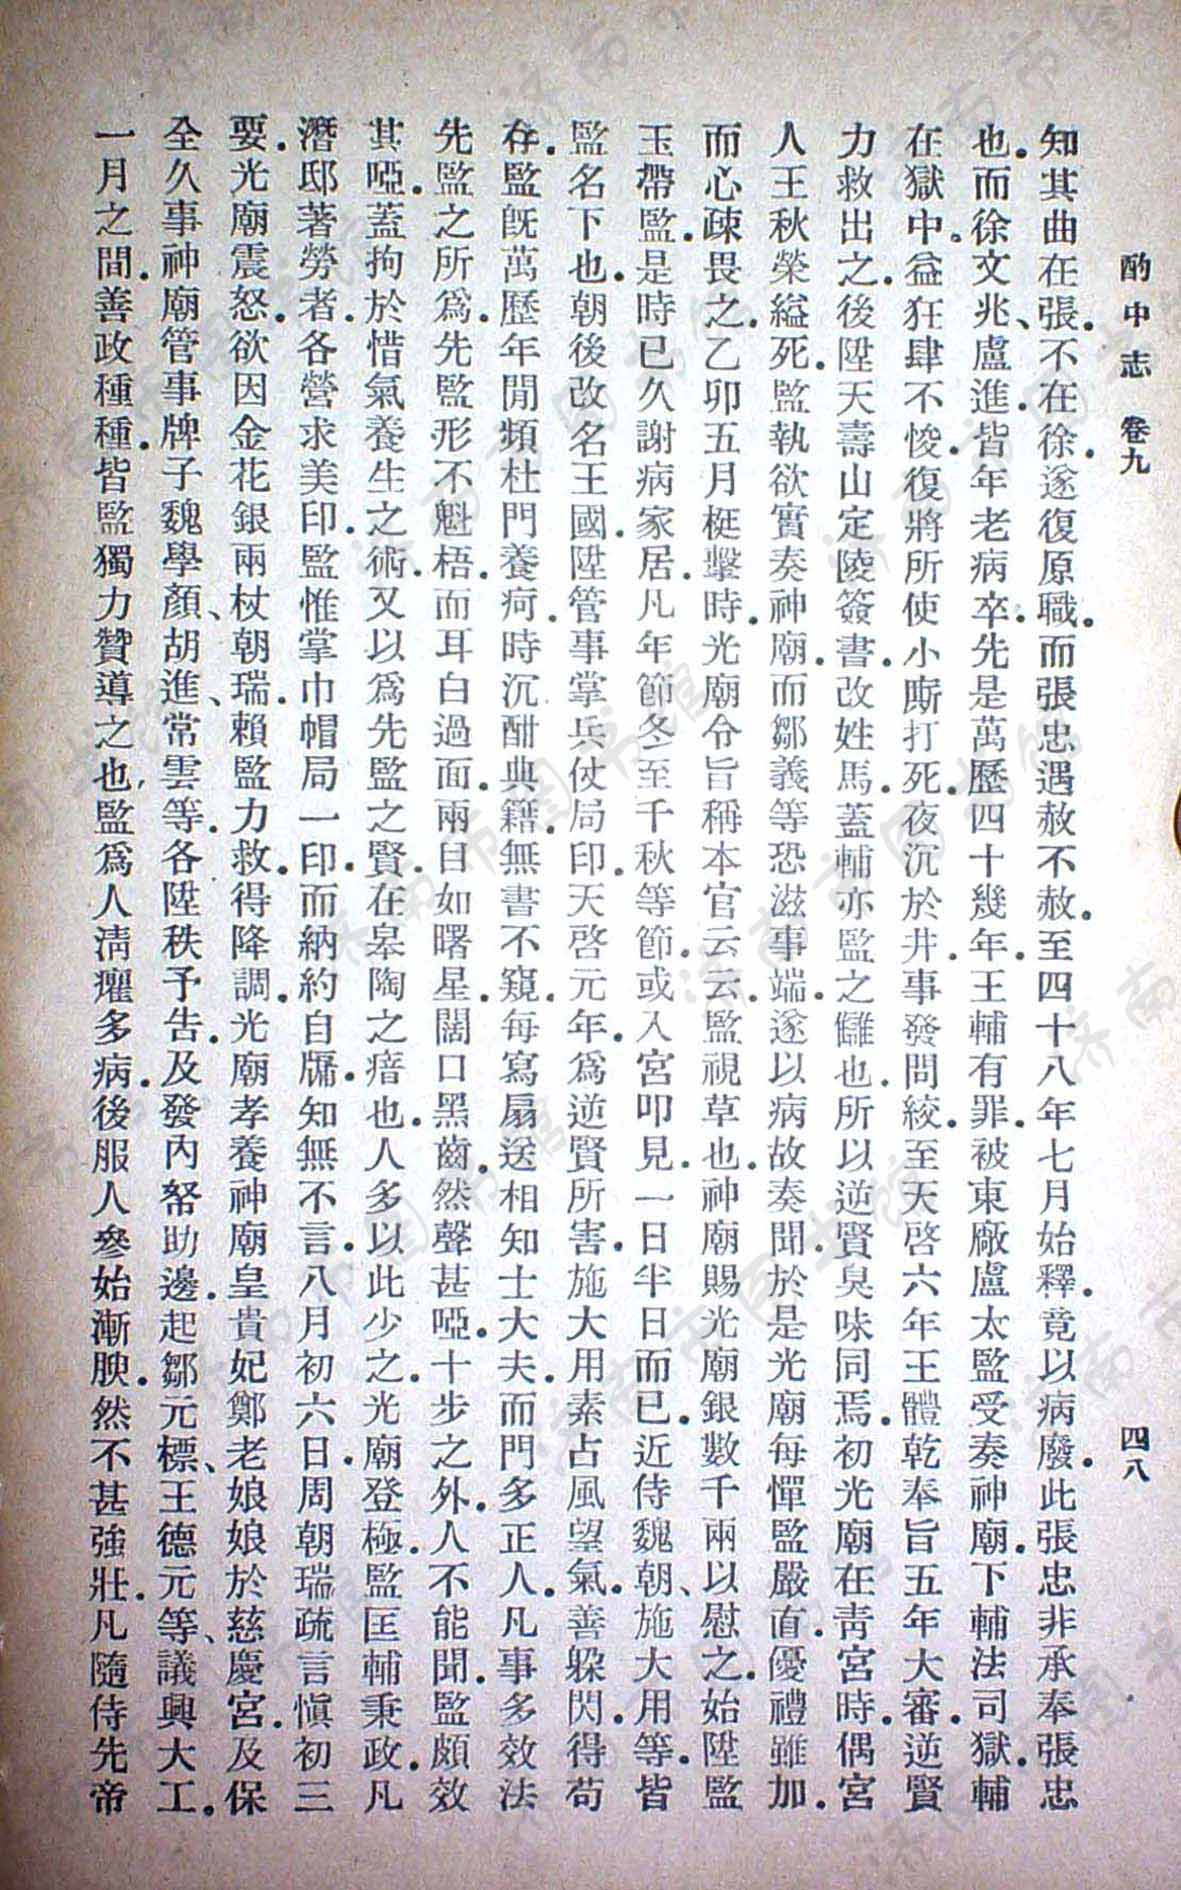 酌中志 卷九 四八
知其曲在張.不在徐.遂復原職.而張忠遇赦不赦.至四十八年七月始釋.竟以病廢.此張忠非承奉張忠
也.而徐文兆、盧進.皆年老病卒.先是萬歷四十幾年.王輔有罪.被東廠盧太監受奏神廟.下輔法司獄.輔
在獄中.益狂肆不悛.復將所使小廝打死.夜沉於井.事發問絞.至天啓六年王體乾奉旨五年大審.逆賢
力救出之.後陞天壽山定陵簽書.改姓馬.蓋輔亦監之讎也.所以逆賢臭味同焉.初光廟在靑宮時.偶宮
人王秋榮縊死.監執欲實奏神廟.而鄒義等恐滋事端.遂以病故奏聞.於是光廟每憚監嚴直.優禮雖加.
而心疎畏之.乙卯五月梃擊時.光廟令旨稱本官云云.監視草也.神廟賜光廟銀數千兩以慰之.始陞監
玉帶監.是時已久謝病家居.凡年節冬至千秋等節.或入宮叩見.一日半日而已.近侍魏朝、施大用等.皆
監名下也.朝後改名王國.陞管事掌兵仗局印.天啓元年.爲逆賢所害.施大用素占風望氣.善躱閃.得苟
存.監旣萬歷年閒頻杜門養疴.時沉酣典籍.無書不窺.每寫扇送相知士大夫.而門多正人.凡事多效法
先監之所爲.先監形不魁梧.而耳白過面.兩目如曙星.闊口黑齒.然聲甚啞.十步之外.人不能聞.監頗效
其啞.蓋拘於惜氣養生之術.又以爲先監之賢.在皋陶之瘖也.人多以此少之.光廟登極.監匡輔秉政.凡
潛邸著勞者.各營求美印.監惟掌巾帽局一印.而納約自牖.知無不言.八月初六日.周朝瑞疏言愼初三
要.光廟震怒.欲因金花銀兩杖朝瑞.賴監力救.得降調.光廟孝養神廟皇貴妃鄭老娘娘於慈慶宮.及保
全久事神廟管事牌子魏學顏、胡進、常雲等.各陞秩予告.及發內帑助邊.起鄒元標、王德元等、議興大工.
一月之間.善政種種.皆監獨力贊導之也.監爲人淸癯多病.後服人參始漸腴.然不甚強壯.凡隨侍先帝